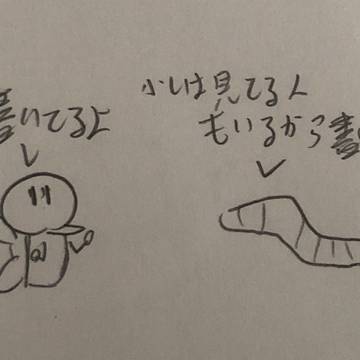 書いてるよ
少しは見てる人
もいるから書